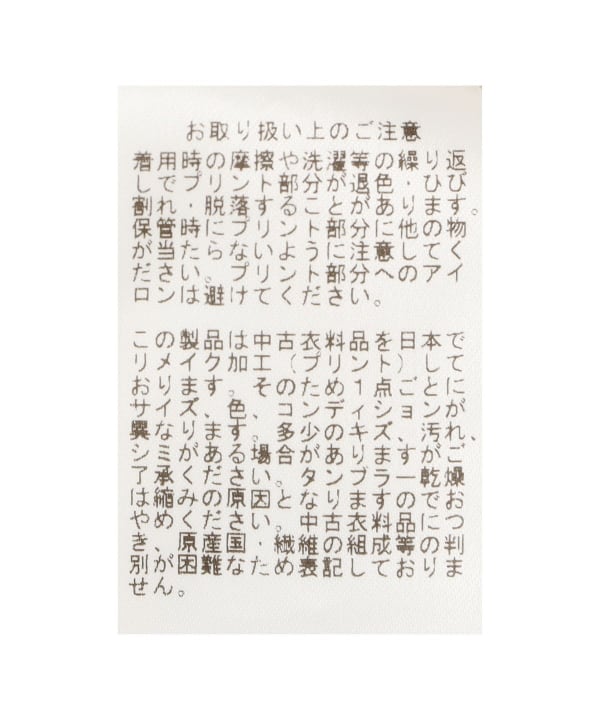 お取り扱い上のご注意
着用時の摩擦や洗濯等の繰り返
しでプリント部分が退色・ひび
割れ・脱落することがあります。
保管時にプリント部分に他の物
が当たらないように注意してく
ださい。プリント部分へのアイ
ロンは避けてください。
この製品は中古衣料品を日本で
リメイク加工(プリント)して
おります。そのため1点ごとに
サイズ、色、コンディションが
異なります。多少のキズ、汚れ、
シミがある場合があります。ご
了承ください。タンブラー乾燥
は縮みの原因となりますのでお
やめください。中古衣料品につ
き、原産国・繊維の組成等の判
別が困難なため表記しておりま
せん。